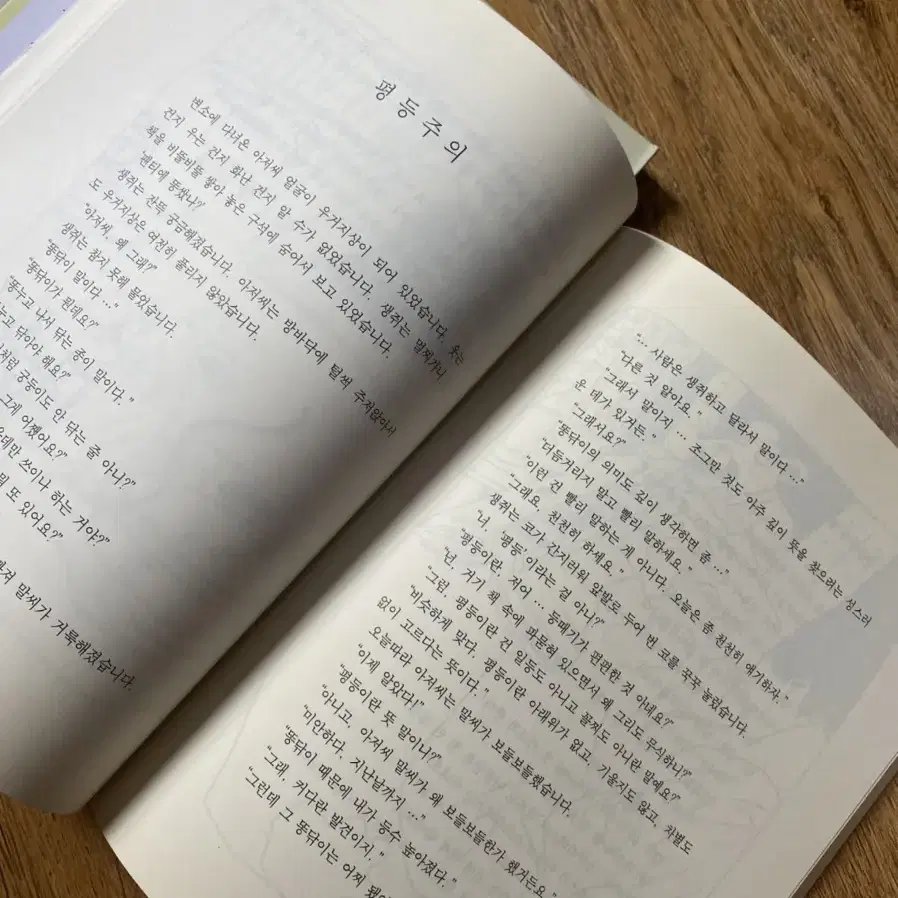 평등주의
변소에 다녀온 아저씨 얼굴이 우거지상이 되어 있었습니다. 웃는
건지 우는 건지 화난 건지 알 수가 없었습니다. 생쥐는 멀찌가니
책을 비뚤비뚤 쌓아 놓은 구석에 숨어서 보고 있었습니다.
'팬티에 똥쌌나?'
생쥐는 잔뜩 궁금해졌습니다. 아저씨는 방바닥에 털썩 주저앉아서
도 우거지상은 여전히 풀리지 않았습니다.
"아저씨, 왜 그래?"
생쥐는 참지 못해 물었습니다.
"똥닦이 말이다 …"
"똥닦이가 뭔데요?"
"똥누고 나서 닦는 종이 말이다."
누고 닦아야 해요?"
처럼 궁둥이도 안 닦는 줄 아니?"
그게 어쨌어요?"
쓰이나 하는 거야?"
뭐 또 있어요?"
말씨가 거룩해졌습니다.
"… 사람은 생쥐하고 달라서 말이다 …"
"다른 것 알아요."
"그래서 말이지 … 조그만 것도 아주 깊이 뜻을 찾으려는 성스러
운 데가 있거든."
"그래서요?"
"똥닦이의 의미도 깊이 생각하면 좀 …"
"더듬거리지 말고 빨리 말하세요."
"이런 건 빨리 말하는 게 아니다. 오늘은 좀 천천히 얘기하자."
"그래요, 천천히 하세요."
생쥐는 코가 간지러워 앞발로 두어 번 코를 꼭꼭 눌렀습니다.
"너, '평등'이라는 걸 아니?"
"평등이란, 저어 … 등때기가 편편한 것 아네요?"
"넌, 거기 책 속에 파묻혀 있으면서 왜 그리도 무식하니?"
"그럼, 평등이란 건 일등도 아니고 꼴찌도 아니란 말예요?"
"비슷하게 맞다. 평등이란 아래위가 없고, 기울지도 않고, 차별도
없이 고르다는 뜻이다."
오늘따라 아저씨는 말씨가 보들보들했습니다.
"이제 알았다!"
"평등이란 뜻 말이니?"
"아니고, 아저씨 말씨가 왜 보들보들한가 했거든요."
"미안하다. 지난날까지 …"
"똥닦이 때문에 내가 등수 높아졌다."
"그래, 커다란 발견이지."
"그런데 그 똥닦이는 어찌